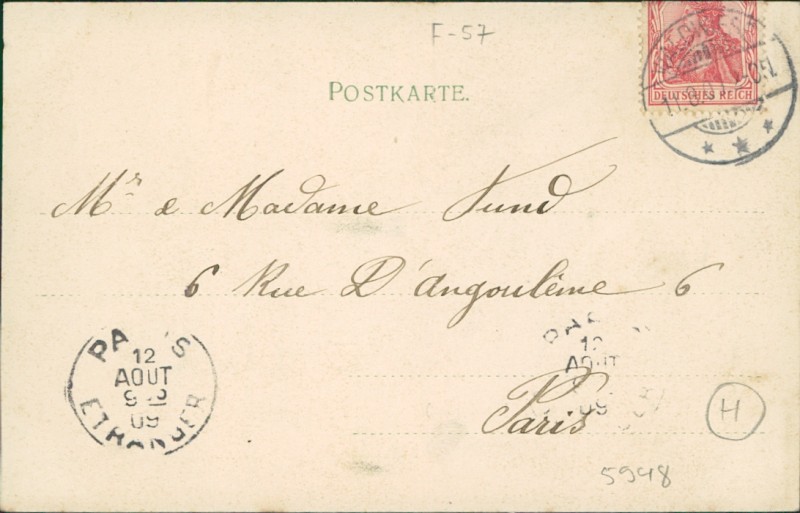 F-57
POSTKARTE.
DEUTSCHES REICH
Mr & Madame
6 Rue D'angoulême 6
Paris
PARIS
12
AOUT
09
ETRANGER
12
AOUT
09
H
5948